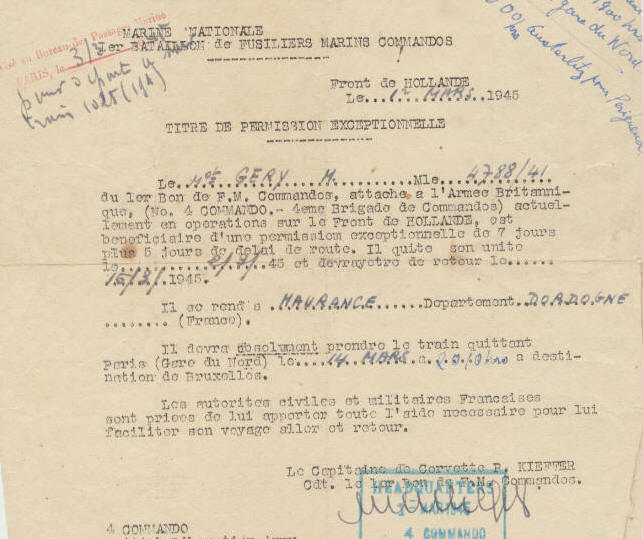 MARINE NATIONALE
1er BATAILLON de FUSILIERS MARINS COMMANDOS
Visé au Bureau des Passages Marine
PARIS, le 3/3
pour départ
train 1025 (19h)
1900 hrs
gare du Nord
00 hrs Austerlitz pour Périgueux
Front de HOLLANDE
Le...1er MARS..1945
TITRE DE PERMISSION EXCEPTIONNELLE
Le..Mot GERY M.........Mle....4788/41
du 1er Bon de F.M. Commandos, attache a l'Armee Britanni-
que, (No. 4 COMMANDO.- 4eme Brigade de Commandos) actuel-
lement en operations sur le Front de HOLLANDE, est
beneficiaire d'une permission exceptionnelle de 7 jours
plus 5 jours de delai de route. Il quite son unite
le........2/3/.45 et devrayetre de retour le......
15/3/.1945.
Il se rend a .MAURANCE.....Departement.DORDOGNE
........ (France).
Il devra absolument prendre le train quittant
Paris (Gare du Nord) le....14 MARS.a.20.10 hrs a desti-
nation de Bruxelles.
Les autorites civiles et militaires Francaises
sont priees de lui apporter toute l'aide necessaire pour lui
faciliter son voyage aller et retour.
Le Capitaine de Corvette P. KIEFFER
Cdt. le 1er Bon de F.M. Commandos.
HEADQUARTERS
4 COMMANDO
4 COMMANDO